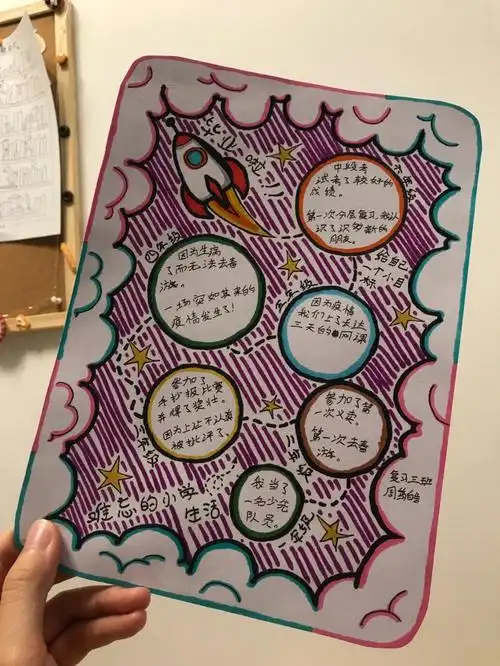 六年级
中段考
试考了较好的
成绩。
第一次分层复习,我认
识了识多新的
朋友。
给自己
一个小目
标
五年级
因为疫情
我们上了长达
三天的网课
四年级
因为生病
了而无法去春
游。
一场突如其来的
疫情发生了!
三年级
参加了
手抄报比赛
并得了奖壮。
因为上让不认真
被批评了。
二年级
参加了第
一次义卖。
第一次去春
游。
一年级
我当了
一名少先
队员。
难忘的小学
生活
复习三班